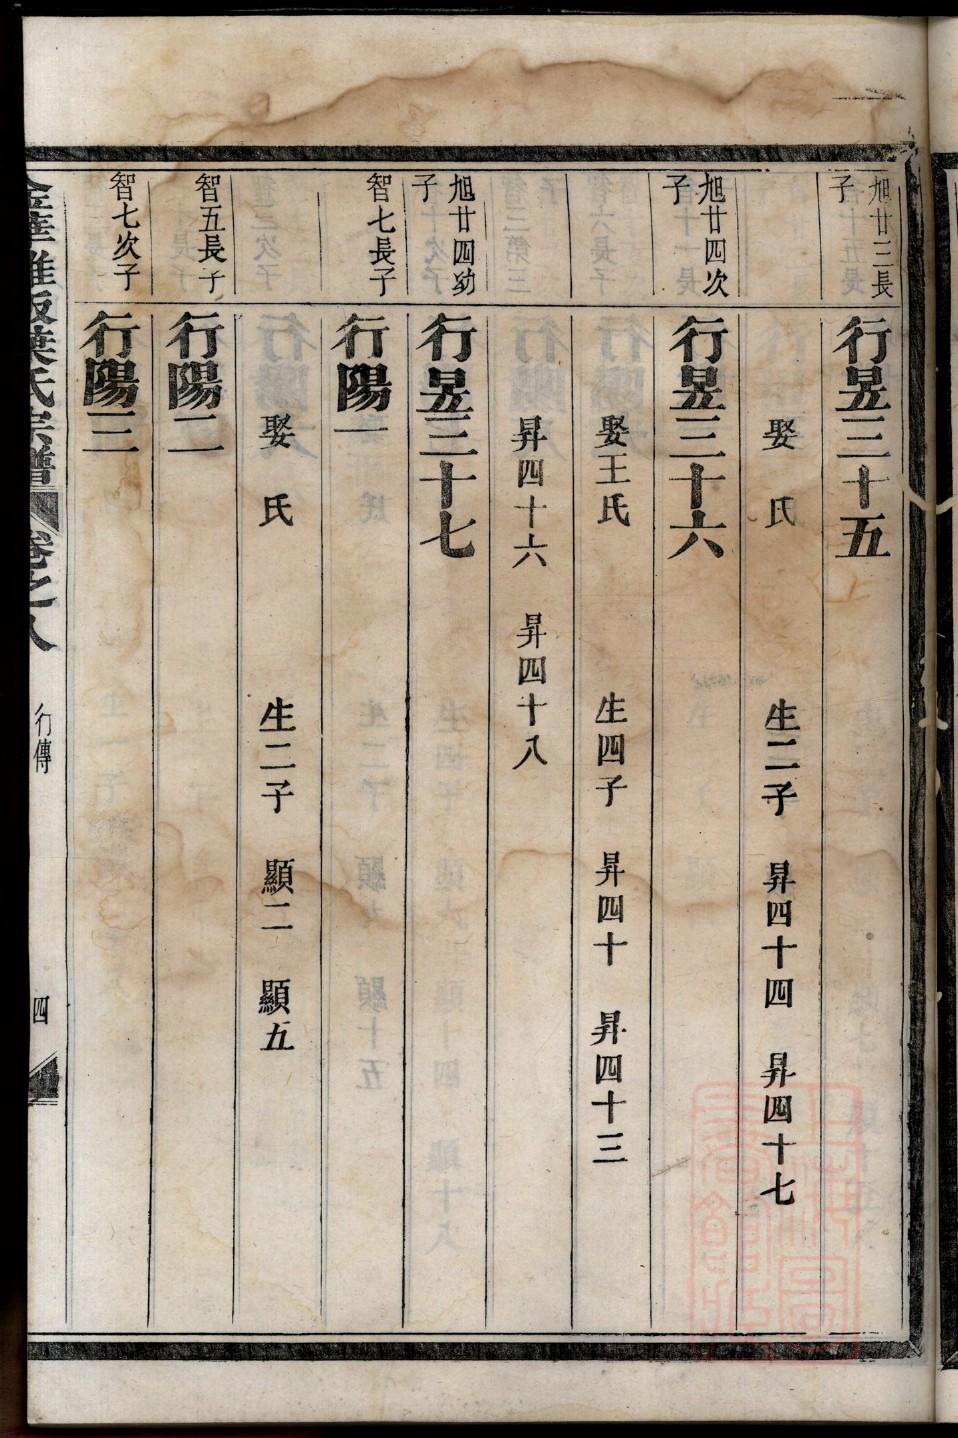 旭廿三長子
行昱三十五
娶 氏 生二子 昇四十四 昇四十七
旭廿四次子
行昱三十六
娶王氏 生四子 昇四十 昇四十三
昇四十六 昇四十八
旭廿四幼子
行昱三十七
智七長子
行陽一
娶 氏 生二子 顯二 顯五
智五長子
行陽二
智七次子
行陽三
葉氏宗譜 卷之八 行傳 四